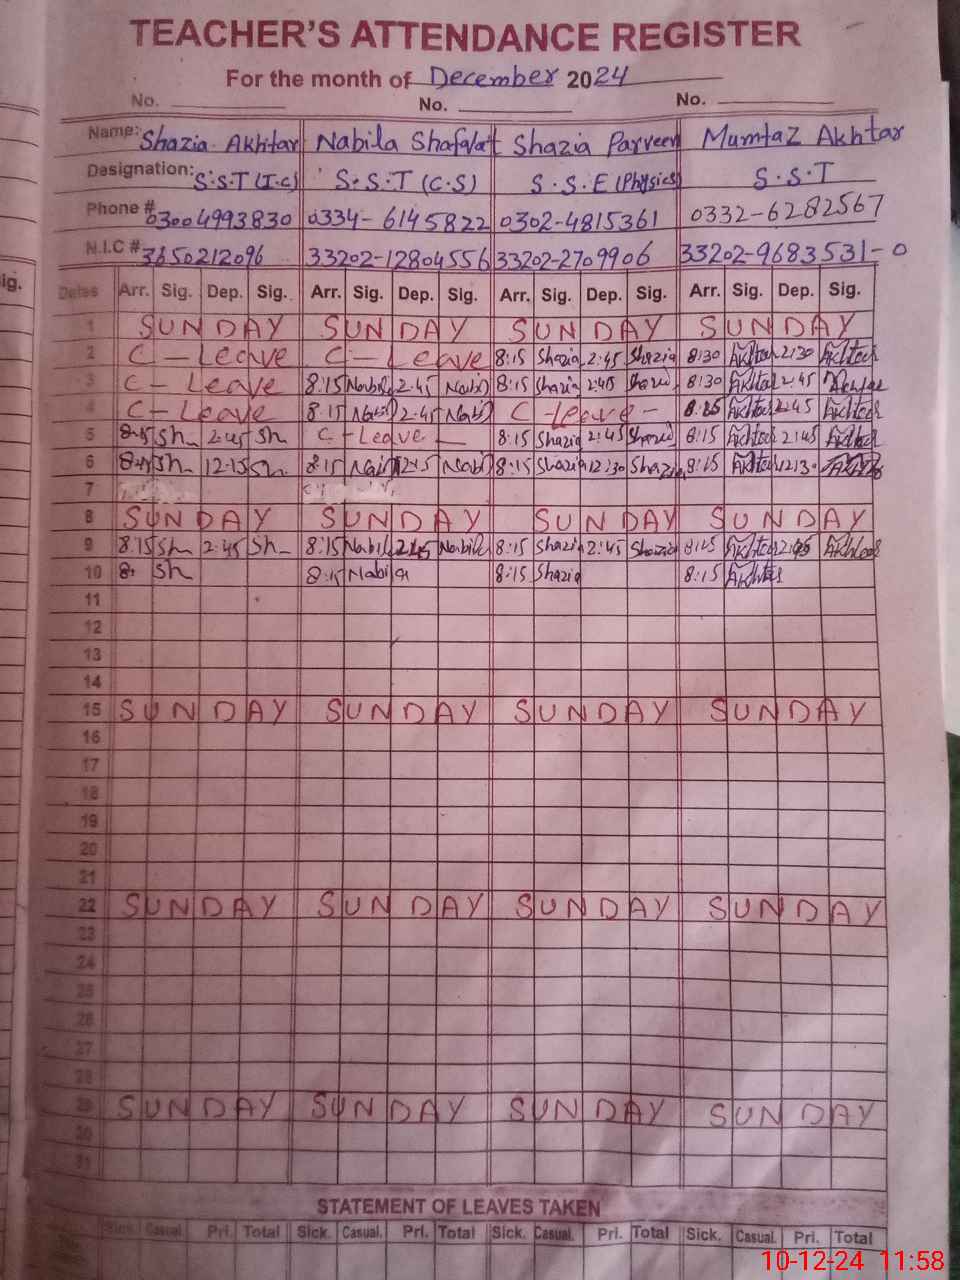 TEACHER'S ATTENDANCE REGISTER
For the month of December 2024
No. No. No.
Name: Shazia Akhtar Nabila Shafqat Shazia Parveen Mumtaz Akhtar
Designation: S.S.T (I.C) S.S.T (C.S) S.S.E (Physics) S.S.T
Phone # 03004993830 0334-6145822 0302-4815361 0332-6282567
N.I.C # 3850212096 33202-12804556 33202-2709906 33202-9683531-0
ig.
Dates Arr. Sig. Dep. Sig. Arr. Sig. Dep. Sig. Arr. Sig. Dep. Sig. Arr. Sig. Dep. Sig.
1 SUNDAY SUNDAY SUNDAY SUNDAY
2 C-Leave C-Leave 8:15 Shazia 2:45 Shazia 8:30 Akhtar 2:30 Akhtar
3 C-Leave 8:15 Nabil 2:45 Nabil 8:15 Shazia 2:45 Shazia 8:30 Akhtar 2:45 Akhtar
4 C-Leave 8:15 Nabil 2:45 Nabil C-Leave- Akhtar 2:45 Akhtar
5 Sh 2:45 Sh C-Leave- 8:15 Shazia 2:45 Shazia 8:15 Akhtar 2:45 Akhtar
6 Sh 12:15 Sh 8:15 Nabi 8:15 Shazia 12:30 Shazia 8:15 Akhtar 12:30
7
8 SUNDAY SUNDAY SUNDAY SUNDAY
9 8:15 Sh 2:45 Sh 8:15 Nabil 2:45 Nabila 8:15 Shazia 2:45 Shazia 8:15 Akhtar 2:45 Akhtar
10 8: Sh 8:15 Nabila 8:15 Shazia 8:15 Akhtar
11
12
13
14
15 SUNDAY SUNDAY SUNDAY SUNDAY
16
17
18
19
20
21
22 SUNDAY SUNDAY SUNDAY SUNDAY
23
24
25
26
27
28
29 SUNDAY SUNDAY SUNDAY SUNDAY
30
31
STATEMENT OF LEAVES TAKEN
Sick. Casual. Pri. Total Sick. Casual. Pri. Total Sick. Casual. Pri. Total Sick. Casual. Pri. Total
10-12-24 11:58